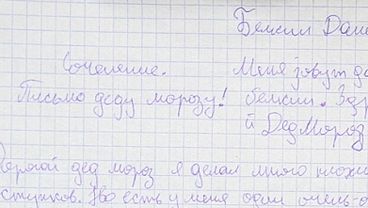 Бемсил Дани
Сочеление. Меня зовут да
Письмо деду морозу! бемсил. Здр
й Дед Мороз
Дорогой дед мороз я делал много плохих
ступков. Но есть у меня один очень-о